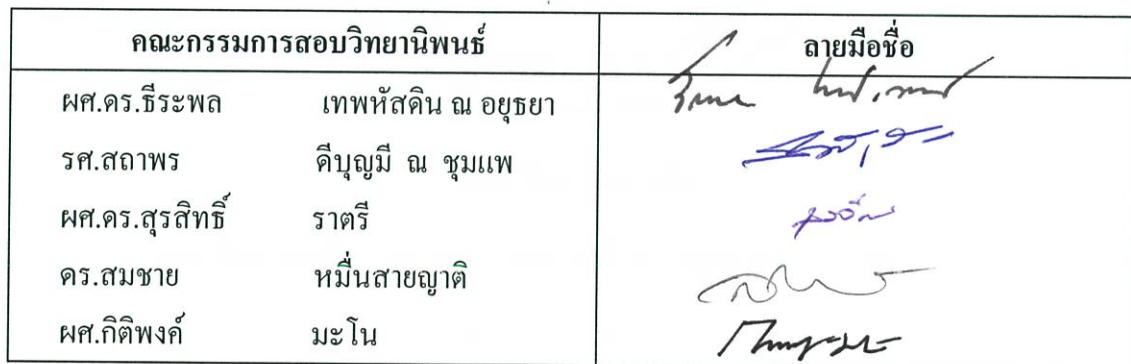 คณะกรรมการสอบวิทยานิพนธ์ ลายมือชื่อ
ผศ.ดร.ธีระพล เทพหัสดิน ณ อยุธยา
รศ.สถาพร ดีบุญมี ณ ชุมแพ
ผศ.ดร.สุรสิทธิ์ ราตรี
ดร.สมชาย หมื่นสายญาติ
ผศ.กิติพงค์ มะโน